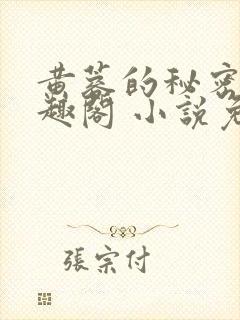 黄蓉的秘密
趣閣 小說免
張宗付